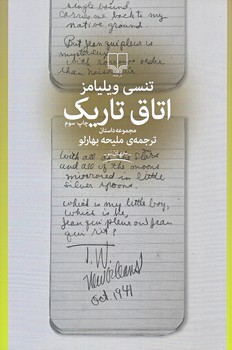 single bound,
carry me back to my
native ground.
But jean qui pleur is
تنسی ویلیامز
اتاق تاریک
چاپ سوم
مجموعه داستان
ترجمه‌ی ملیحه بهارلو
with all the stars
and all of the moons
mirrored in little
silver spoons.
which is my little boy,
which is he,
jean qui pleure ou jean
qui rit?
T.W.
New Orleans
Oct. 1941